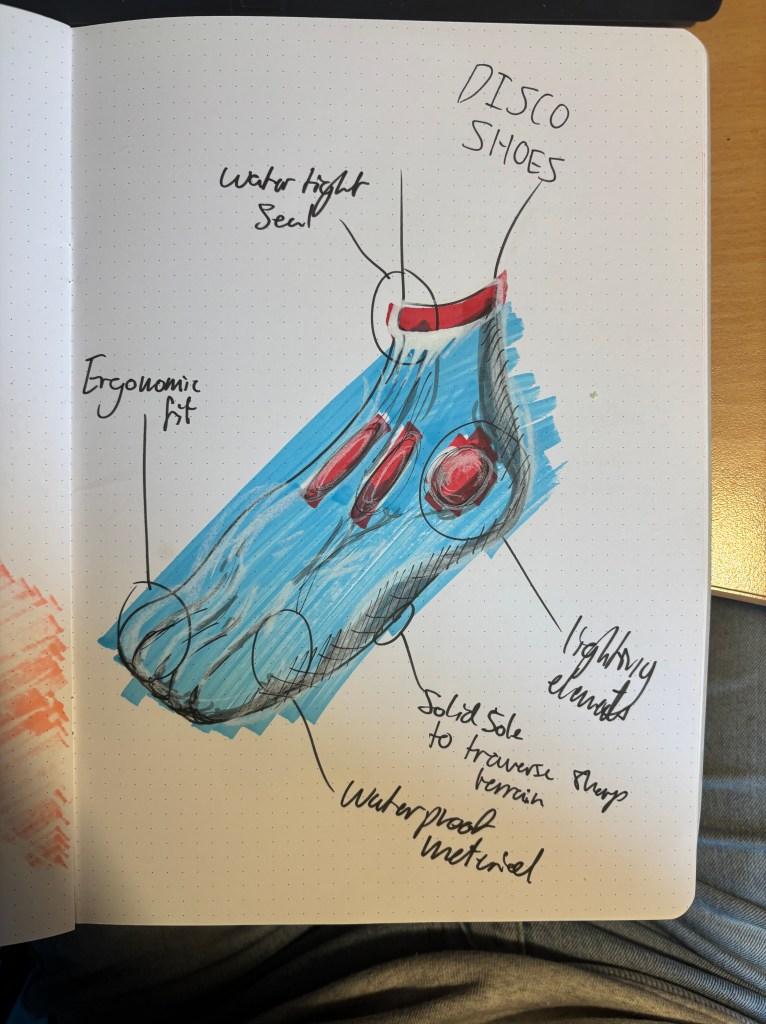 DISCO
SHOES
Water tight
Seal
Ergonomic
fit
lighting
elements
Solid Sole
to traverse sharp
terrain
Waterproof
material